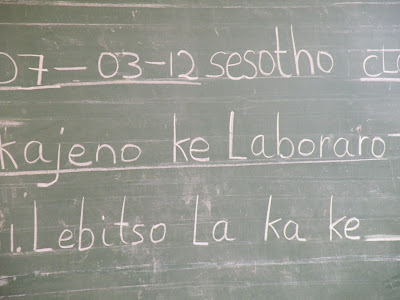 07-03-12 sesotho
kajeno ke Laboraro
1. Lebitso La ka ke